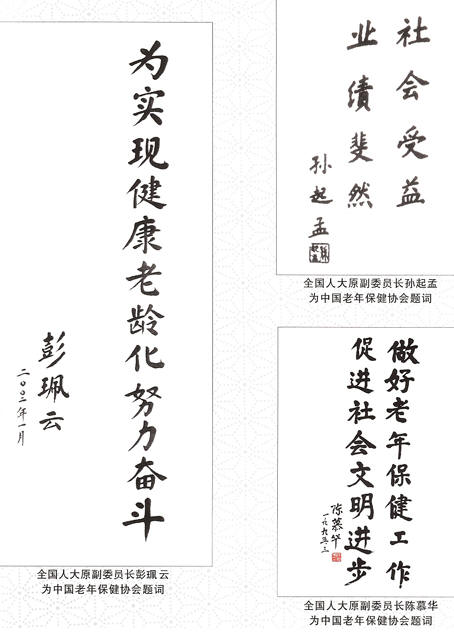 为实现健康老龄化努力奋斗
彭珮云
二〇〇二年一月
全国人大原副委员长彭珮云
为中国老年保健协会题词
社会受益
业绩斐然
孙起孟
全国人大原副委员长孙起孟
为中国老年保健协会题词
做好老年保健工作
促进社会文明进步
陈慕华
一九九五.三
全国人大原副委员长陈慕华
为中国老年保健协会题词